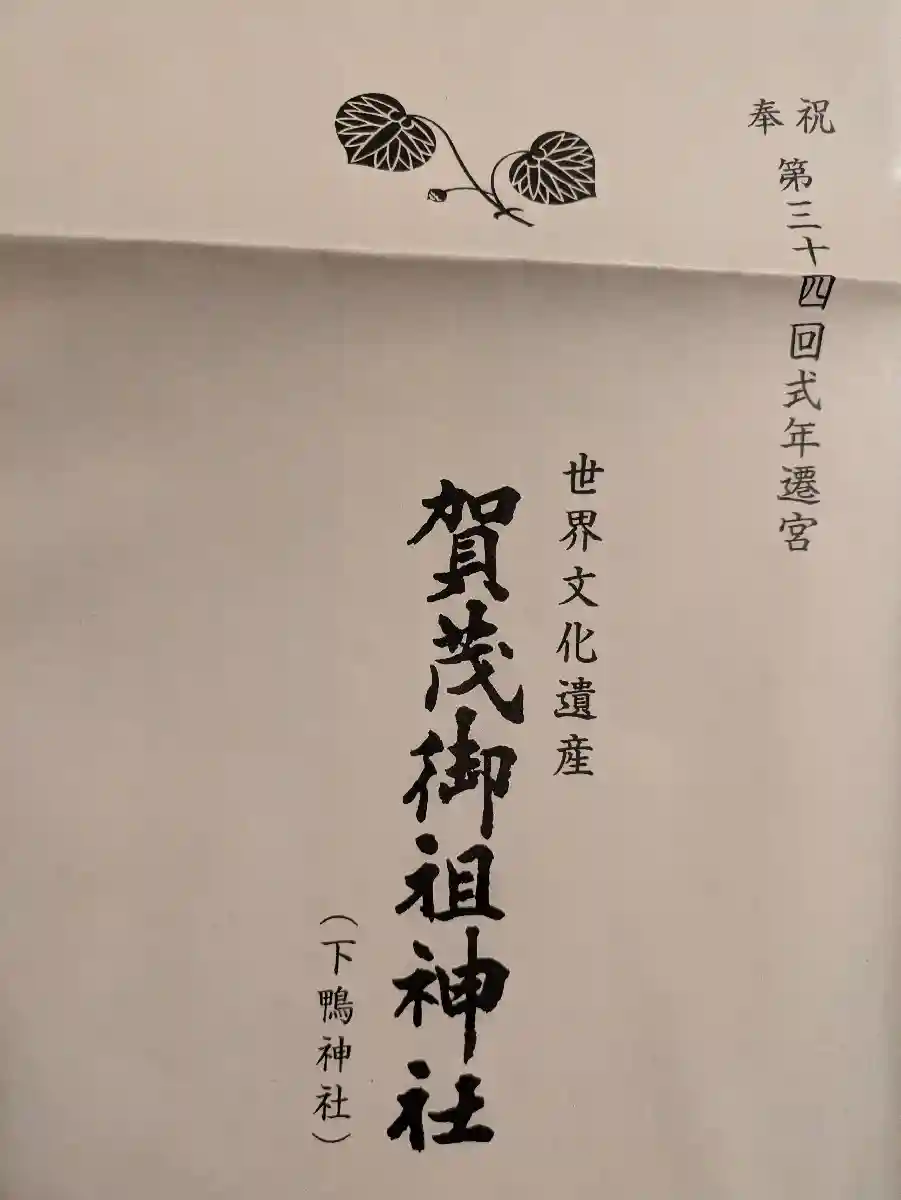 奉祝
第三十四回式年遷宮
世界文化遺産
賀茂御祖神社
（下鴨神社）